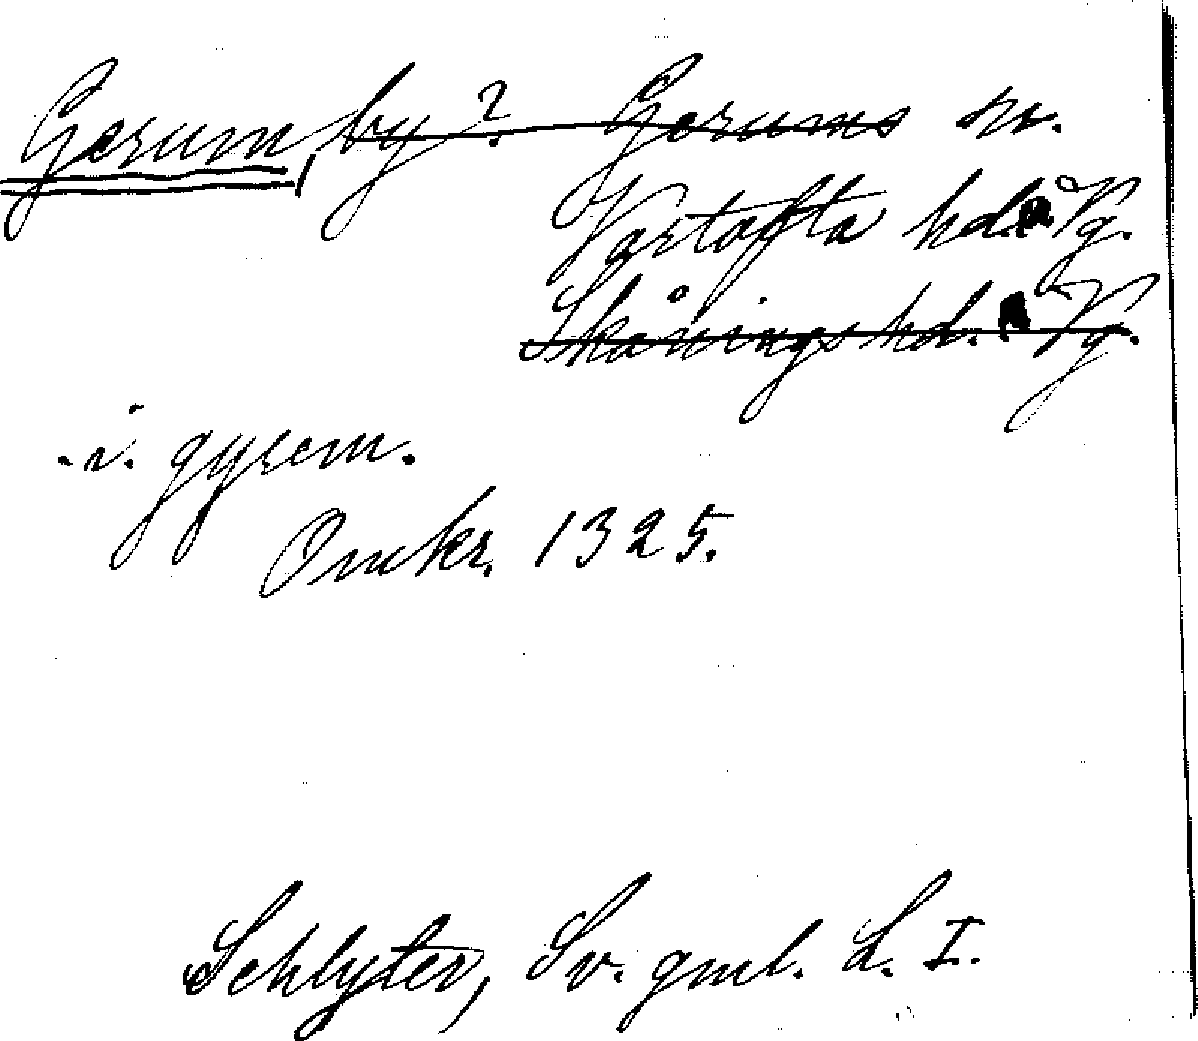 Gerum, by? Gerums sn.
Vartofta hd. Vg.
Skånings hd. Vg.
. i. gyrem.
Omkr. 1325.
Schlyter, Sv. gml. L. I.